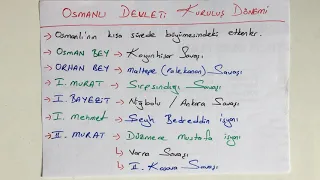 OSMANLI DEVLETİ KURULUŞ DÖNEMİ
→ Osmanlı'nın kısa sürede büyümesindeki etkenler.
→ OSMAN BEY → Koyunhisar Savaşı
→ ORHAN BEY → Maltepe (Palekanon) Savaşı
→ I. MURAT → Sırpsındığı Savaşı
→ I. BAYEZİT → Niğbolu / Ankara Savaşı
→ I. Mehmet → Şeyh Bedreddin isyanı
→ II. MURAT → Düzmece Mustafa isyanı
→ Varna Savaşı
→ II. Kosova Savaşı